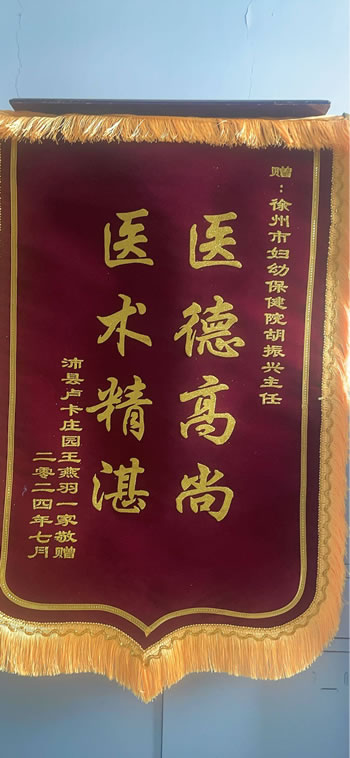 赠：徐州市妇幼保健院胡振兴主任
医德高尚
医术精湛
沛县卢卡庄园王燕羽一家敬赠
二零二四年七月